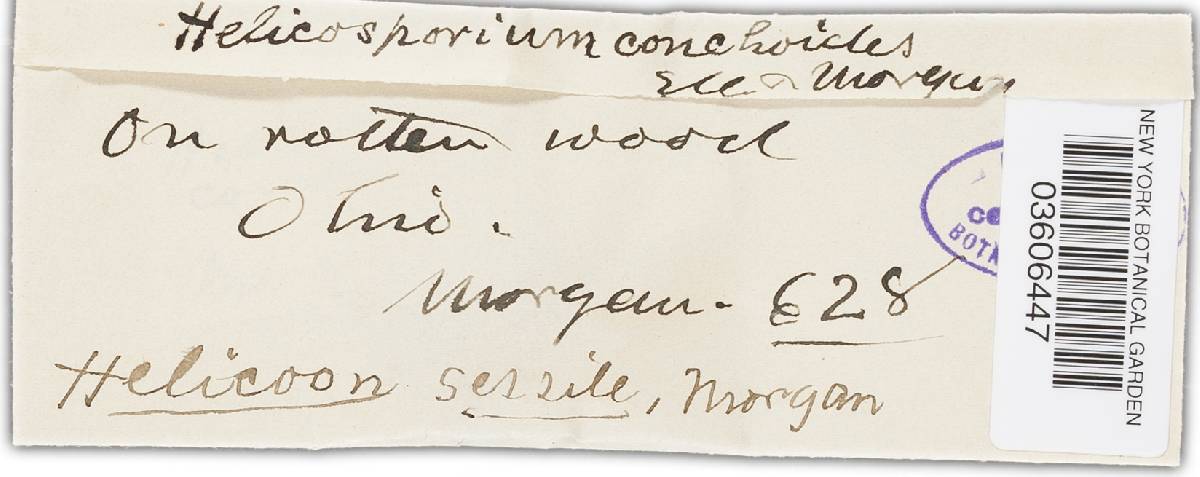 Helicosporium conchoides
Ell & Morgan
On rotten wood
Ohio.
Morgan. 628
Helicoon sessile, Morgan
NEW YORK BOTANICAL GARDEN
03606447
BOTA